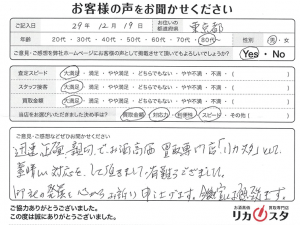 お客様の声をお聞かせください
ご記入日 29年 12月 19日 お住いの都道府県 東京都
年齢 20代・30代・40代・50代・60代・70代・80代 性別 男・女
ご意見・ご感想を弊社ホームページにお客様の声として掲載させて頂いてもよろしいでしょうか? Yes・No
査定スピード 大満足・満足・やや満足・どちらでもない・やや不満・不満・
スタッフ接客 大満足・満足・やや満足・どちらでもない・やや不満・不満・
買取金額 大満足・満足・やや満足・どちらでもない・やや不満・不満・
当店をお選びいただきました決め手は? 買取金額・対応力・利便性・スピード・その他( )
ご意見・ご感想などぜひお聞かせください
迅速 正確 親切 でお酒高価買取専門店「リカスタ」として
素晴しい対応をして頂きまして有難うございました。
心からお祈り申し上げます。
ご協力ありがとうございました。
この度は誠にありがとうございました。
お酒高価買取専門店
リカスタ